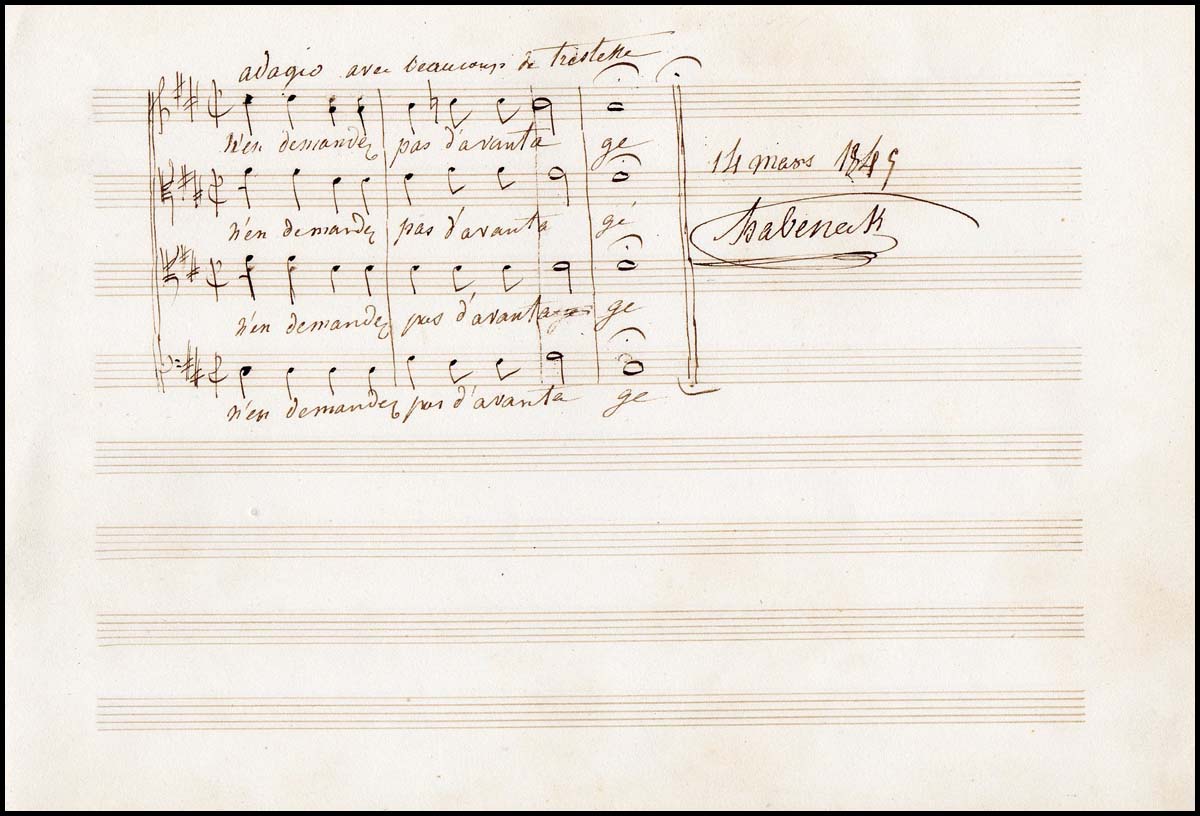 adagio avec beaucoup de tristesse
n'en demandez pas d'avanta ge
14 mars 1845
n'en demandez pas d'avanta gé
habeneck
n'en demandez pas d'avanta ge
n'en demandez pas d'avanta ge